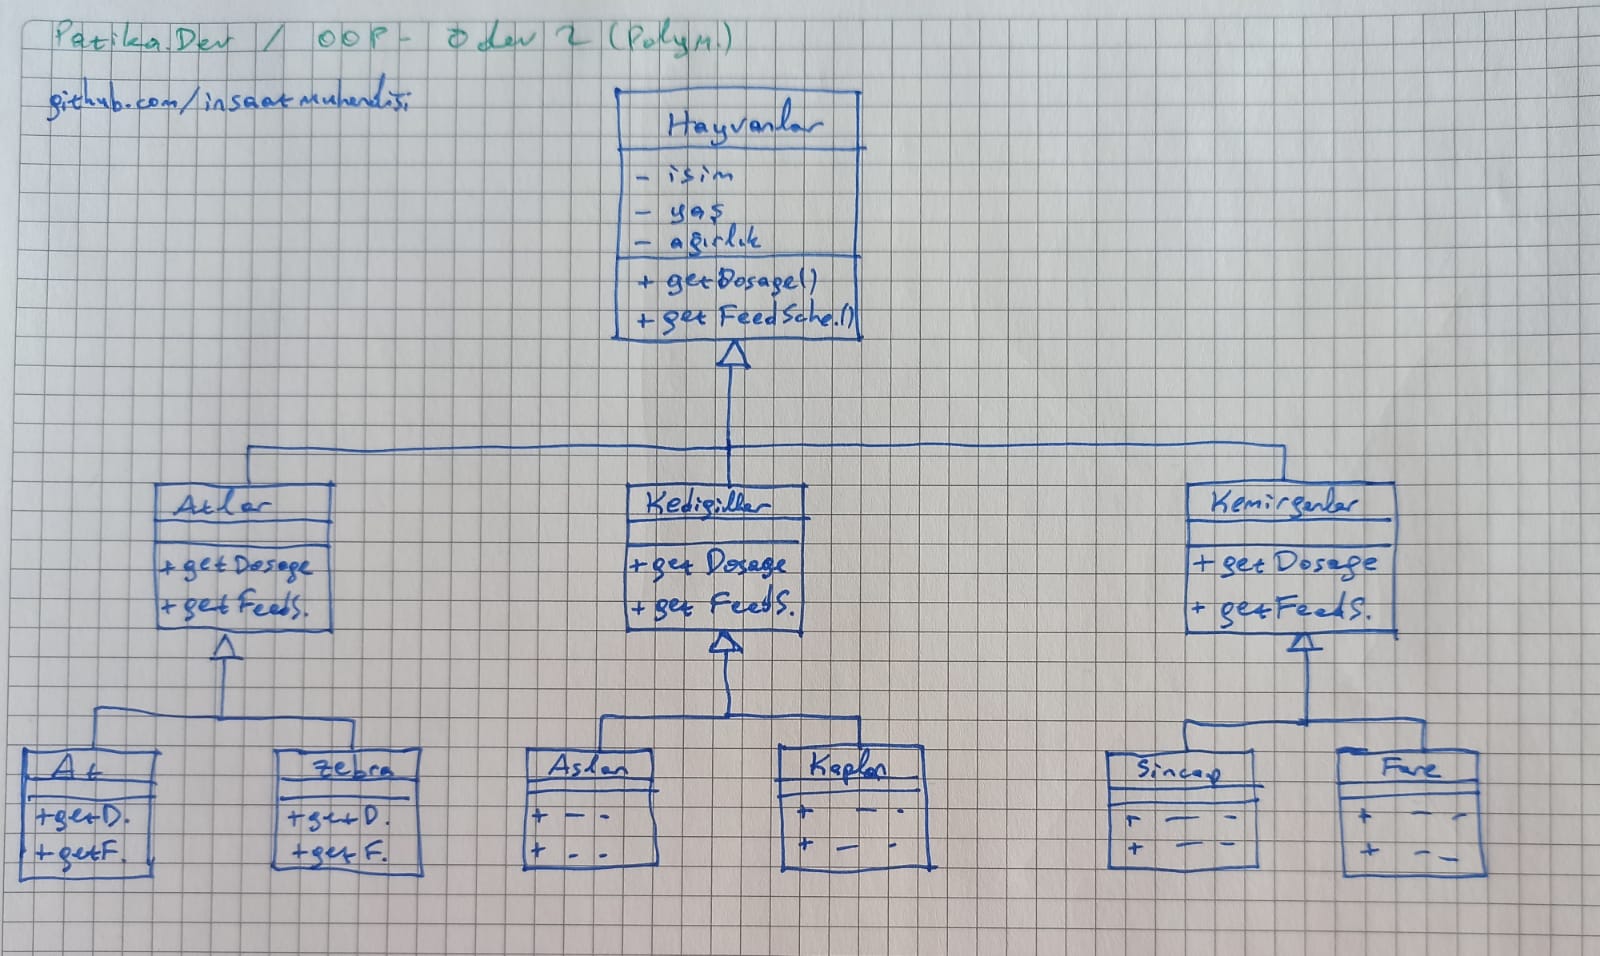 Patika.Dev / OOP - Ödev 2 (Polym.)
github.com/insaatmuhendisi
Hayvanlar
- isim
- yaş
- ağırlık
+ getDosage()
+ getFeedSche.()
Atlar
+ getDosage
+ getFeedS.
Kedigiller
+ get Dosage
+ get FeedS.
Kemirgenler
+ get Dosage
+ getFeedS.
At
+getD.
+getF.
Zebra
+getD.
+get F.
Aslan
+ - -
+ - -
Kaplan
+ - -
+ - -
Sincap
+ - -
+ - -
Fare
+ - -
+ - -